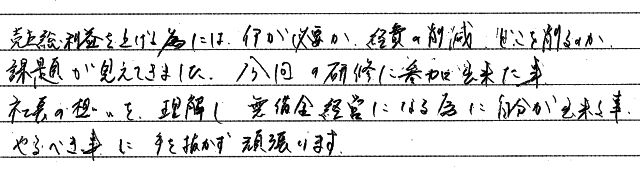 売上総利益を上げる為には、何が必要か、経費の削減、どこを削るのか、
課題が見えてきました。今回の研修に参加出来た事
社長の想いを、理解し無借金経営になる為に自分が出来る事、
やるべき事に手を抜かず頑張ります。